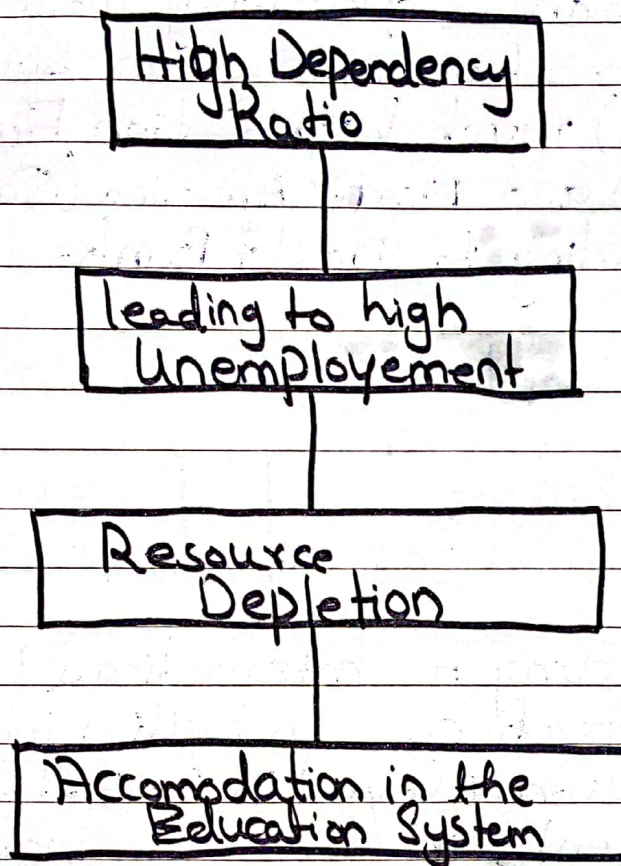 High Dependency
Ratio
leading to high
Unemployement
Resource
Depletion
Accomodation in the
Education System